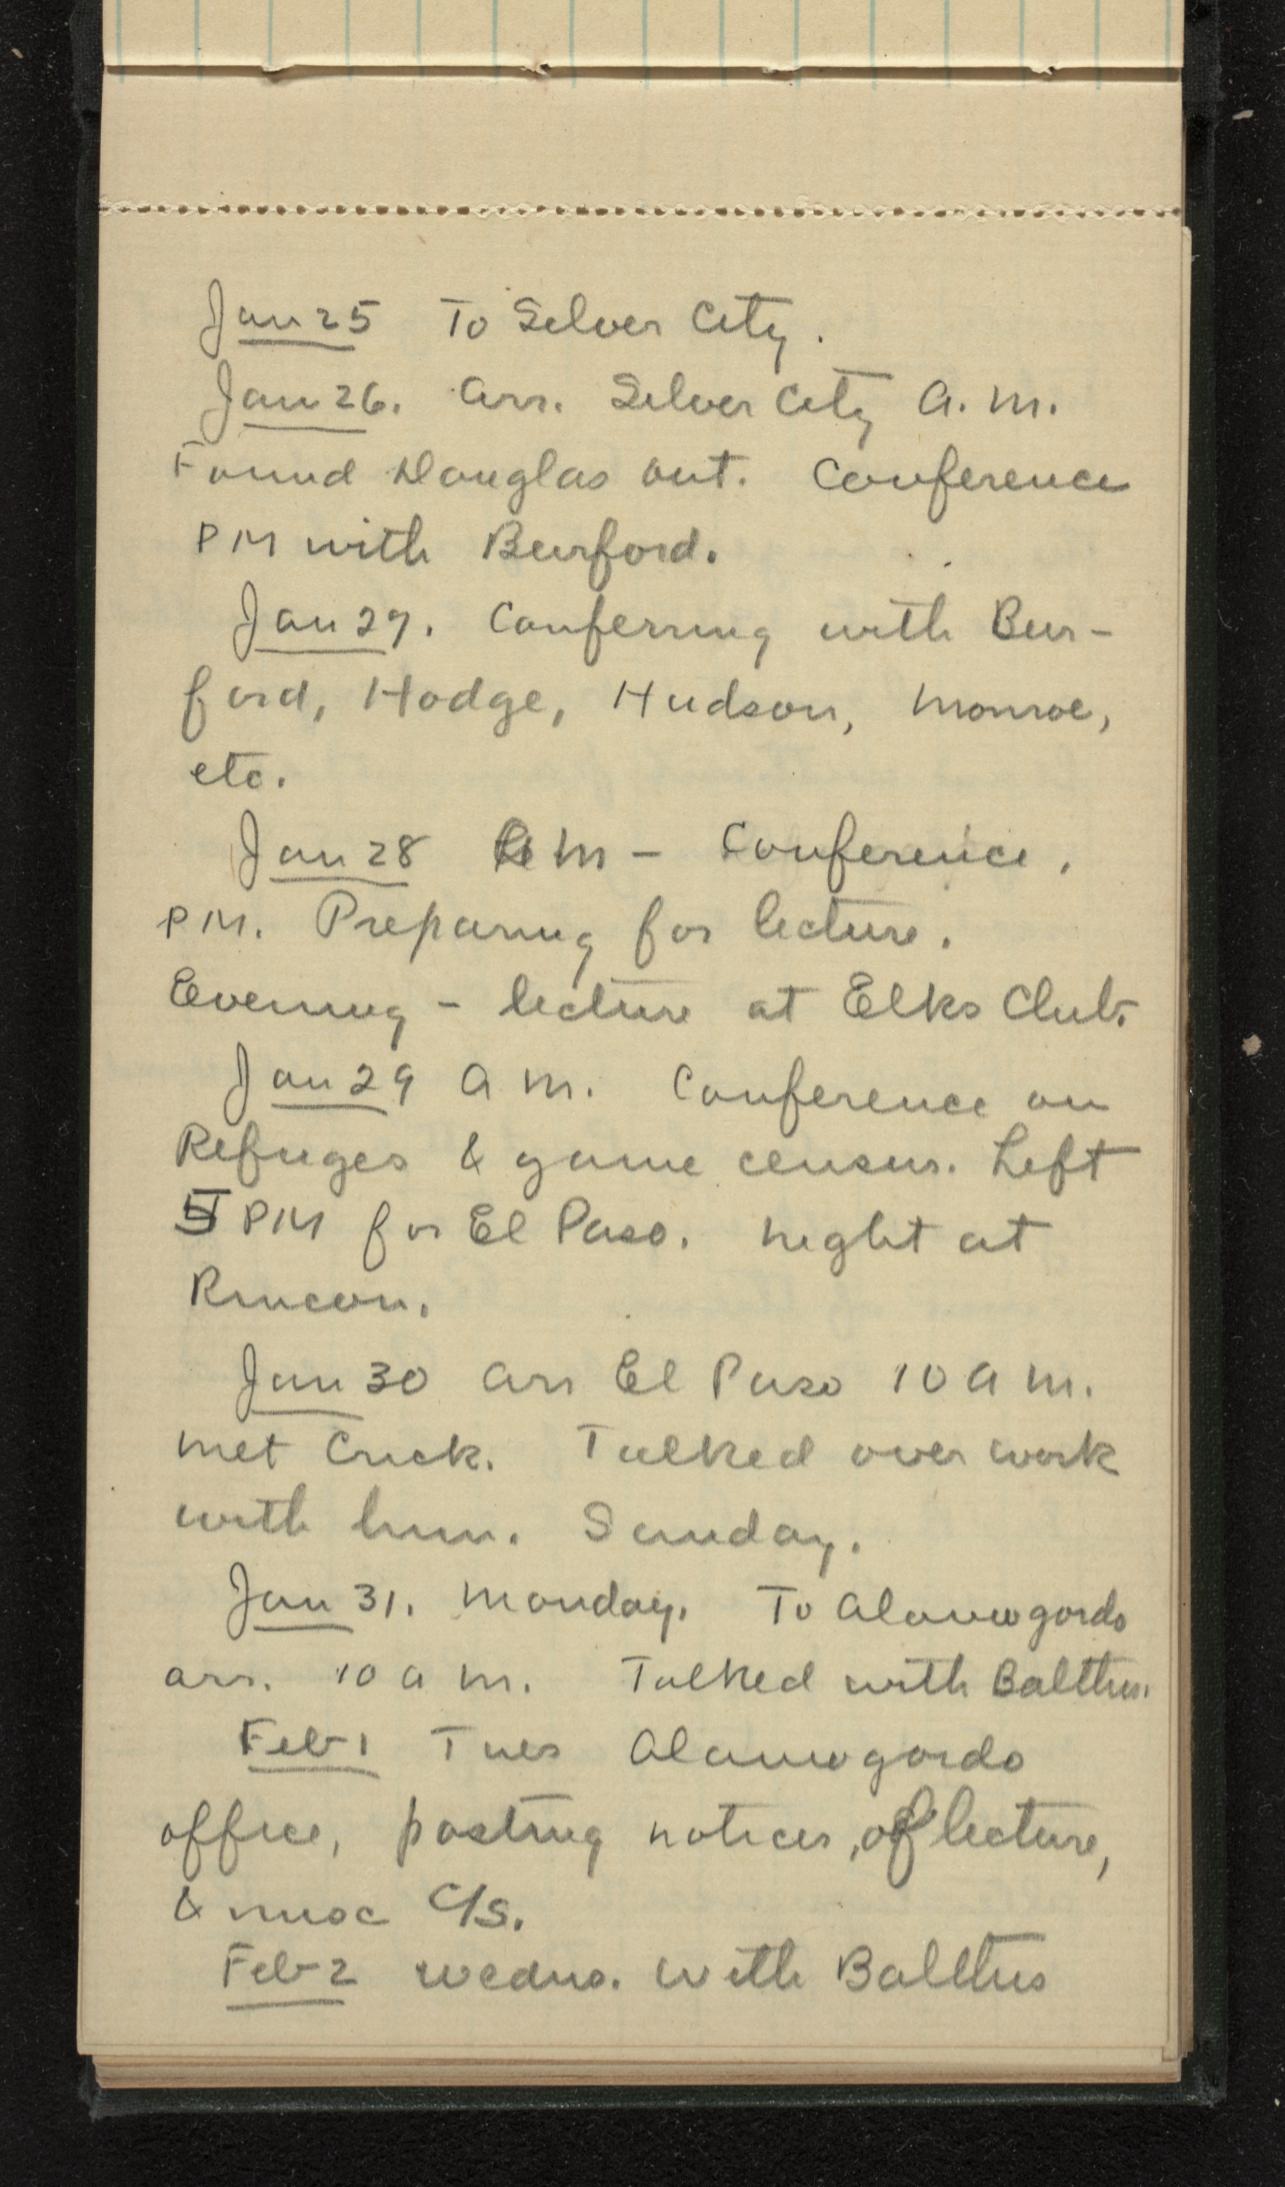 Jan 25 To Silver City.
Jan 26. Arr. Silver City A.M.
Found Douglas out. Conference
PM with Burford.
Jan 27. Conferring with Bur-
ford, Hodge, Hudson, Monroe,
etc.
Jan 28 AM - Conference.
PM. Preparing for lecture.
Evening - lecture at Elks Club.
Jan 29 AM. Conference on
Refuges & game census. Left
5 PM for El Paso. Night at
Rincon.
Jan 30 Arr El Paso 10 AM.
Met Crick. Talked over work
with him. Sunday.
Jan 31. Monday. To Alamogordo
arr. 10 AM. Talked with Balthis.
Feb 1 Tues Alamogordo
office, posting notices, of lecture,
& misc C/s.
Feb 2 Wednes. With Balthis